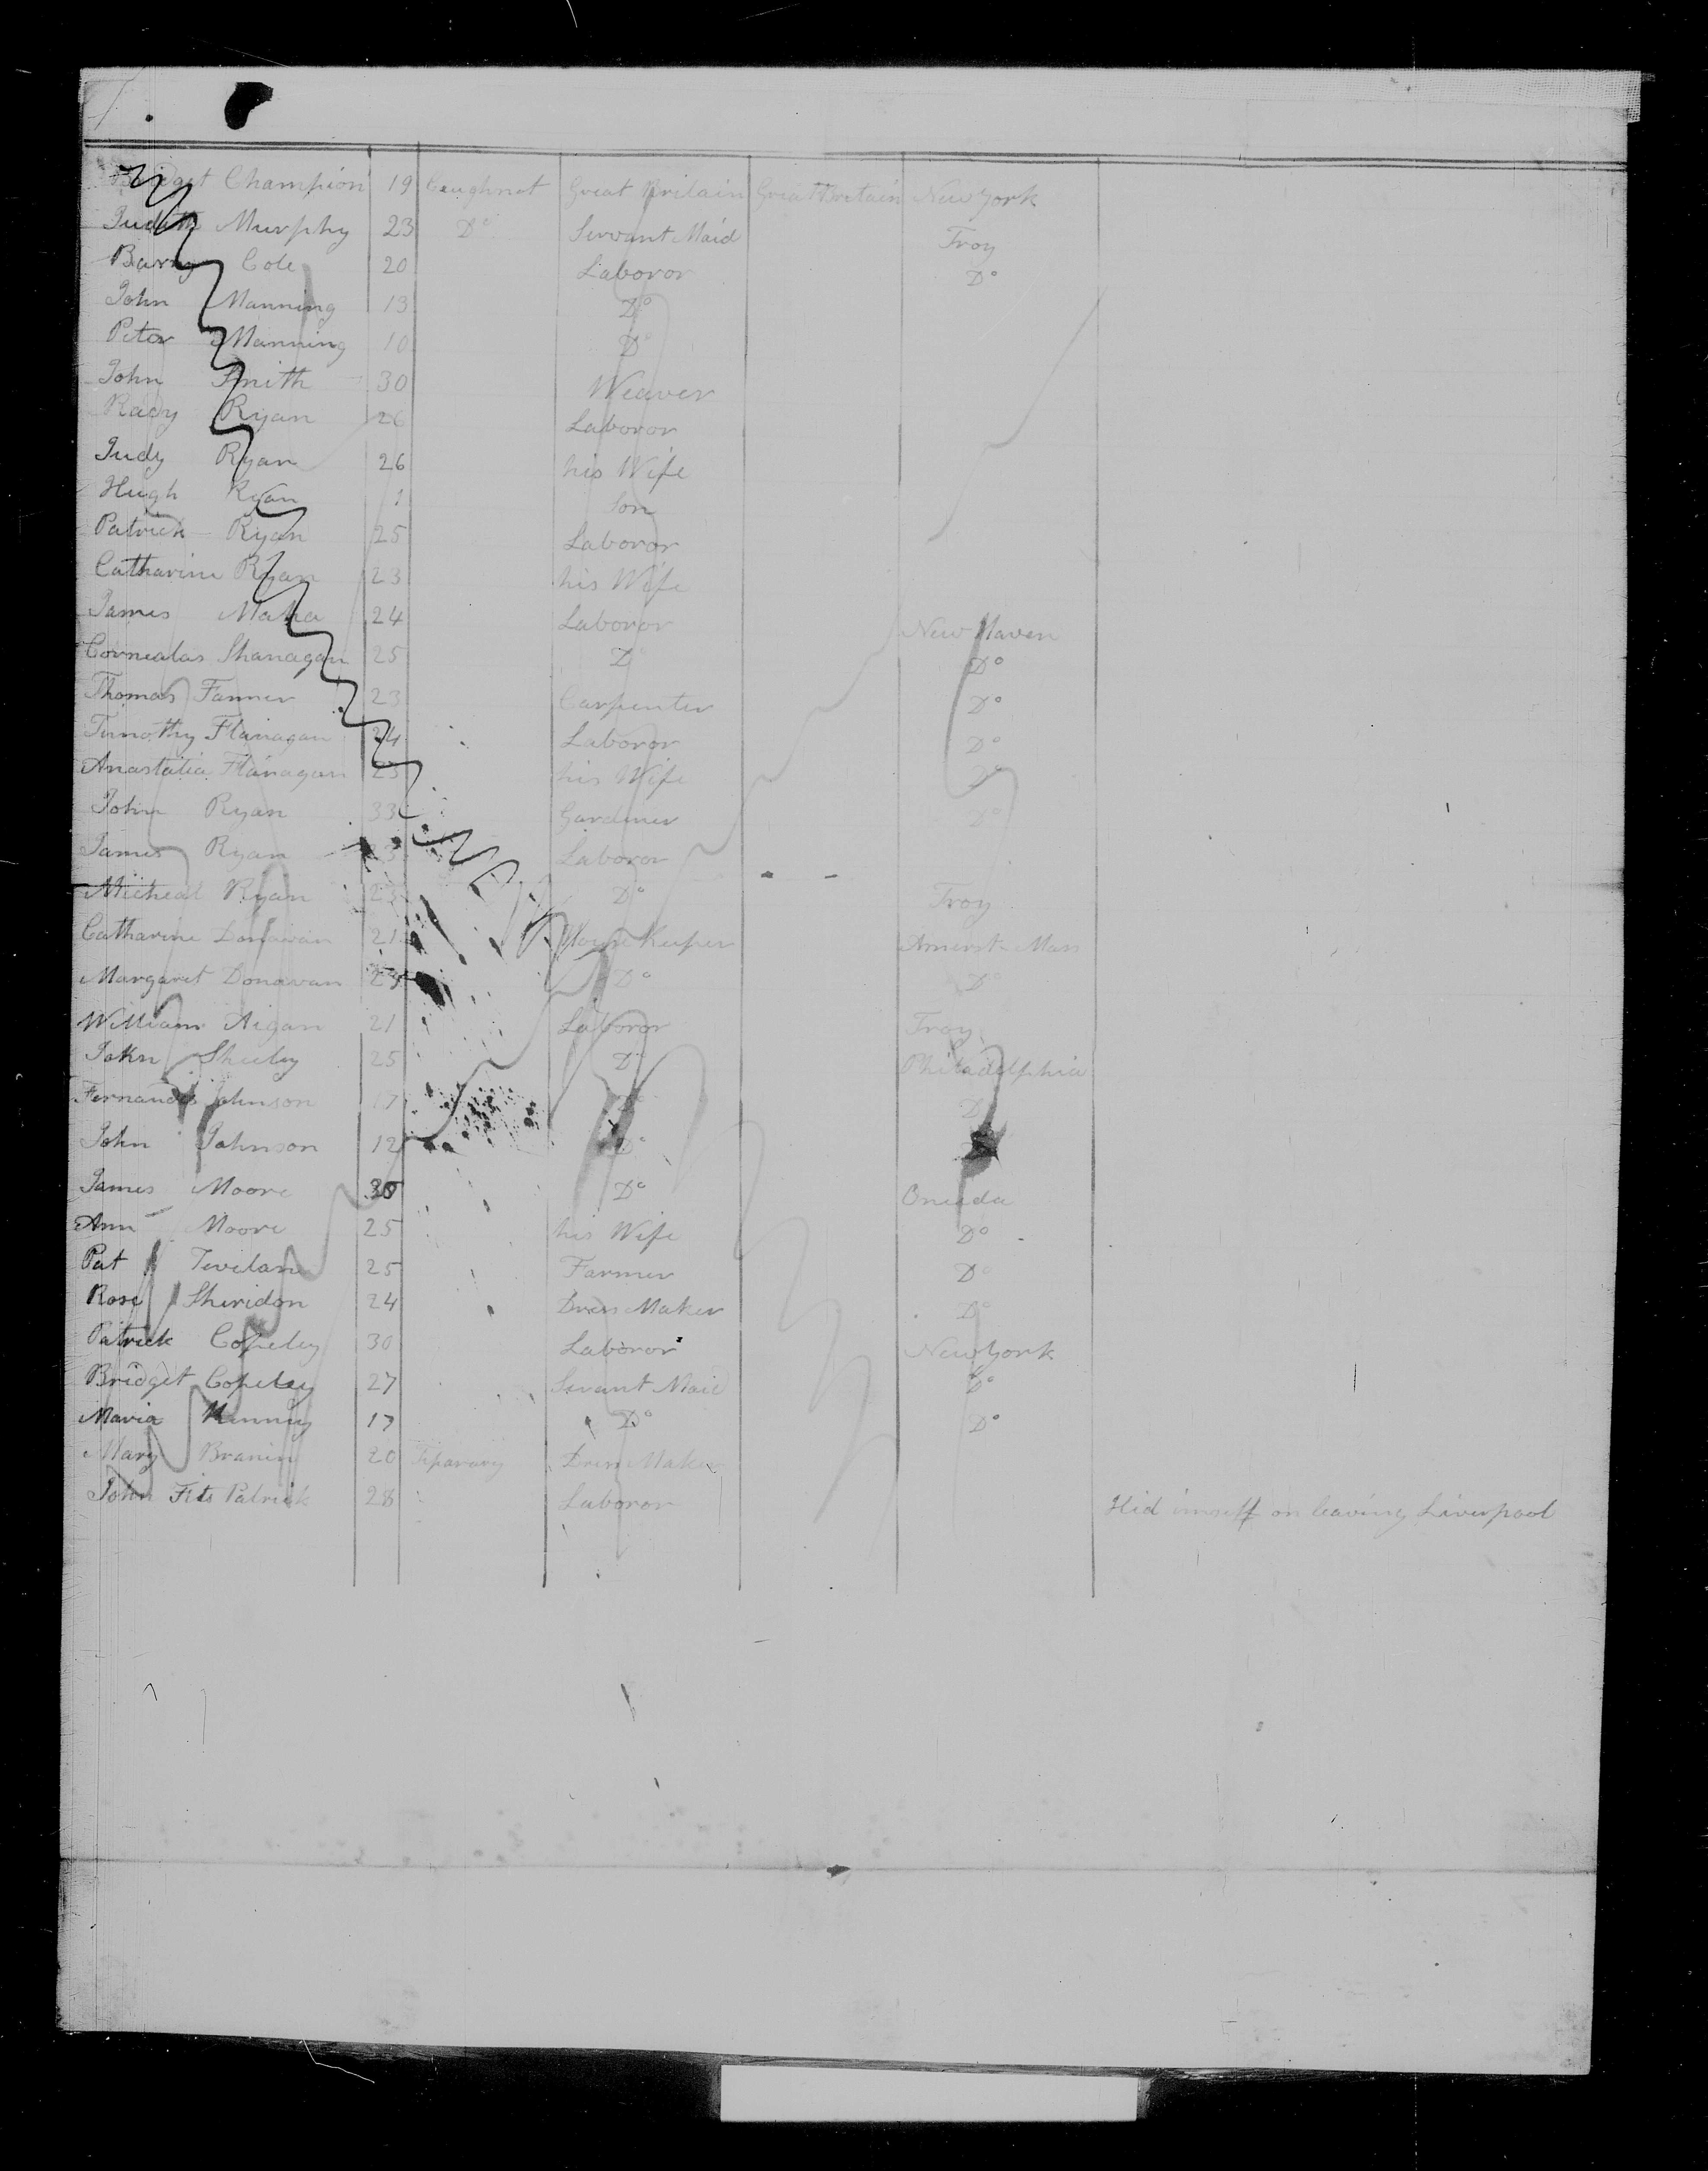 Bridget Champion 19 Caughnot Great Britain Great Britain New York
Judath Murphy 23 Do Servant Maid Troy
Barny Cole 20 Laboror Do
John Manning 13 Do
Peter Manning 10 Do
John Smith 30 Weaver
Rady Ryan 26 Laboror
Judy Ryan 26 his Wife
Hugh Ryan 1 Son
Patrick Ryan 25 Laboror
Catharine Ryan 23 his Wife
James Maha 24 Laboror New Haven
Cornealas Shanagan 25 Do Do
Thomas Fanner 23 Carpenter Do
Timothy Flanagan 24 Laboror Do
Anastatia Flanagan 23 his Wife Do
John Ryan 33 Gardiner Do
James Ryan Laboror
Micheal Ryan 23 Do Troy
Catharine Donavan 21 House Keeper Amerst Mass
Margaret Donavan 23 Do Do
William Aigan 21 Laboror Troy
John Sheehy 25 Do Philadelphia
Fernandis Johnson 17 Do Do
John Johnson 12 Do
James Moore 30 Do Oneida
Ann Moore 25 his Wife Do
Pat 25 Farmer Do
Rose Sheridon 24 Dress Maker Do
Patrick Copeley 30 Laboror New York
Bridget Copeley 27 Servant Maid Do
Maria 17 Do Do
Mary Branin 20 Tiparary Dress Maker
John Fits Patrick 28 Laboror Hid imself on leaving Liverpool